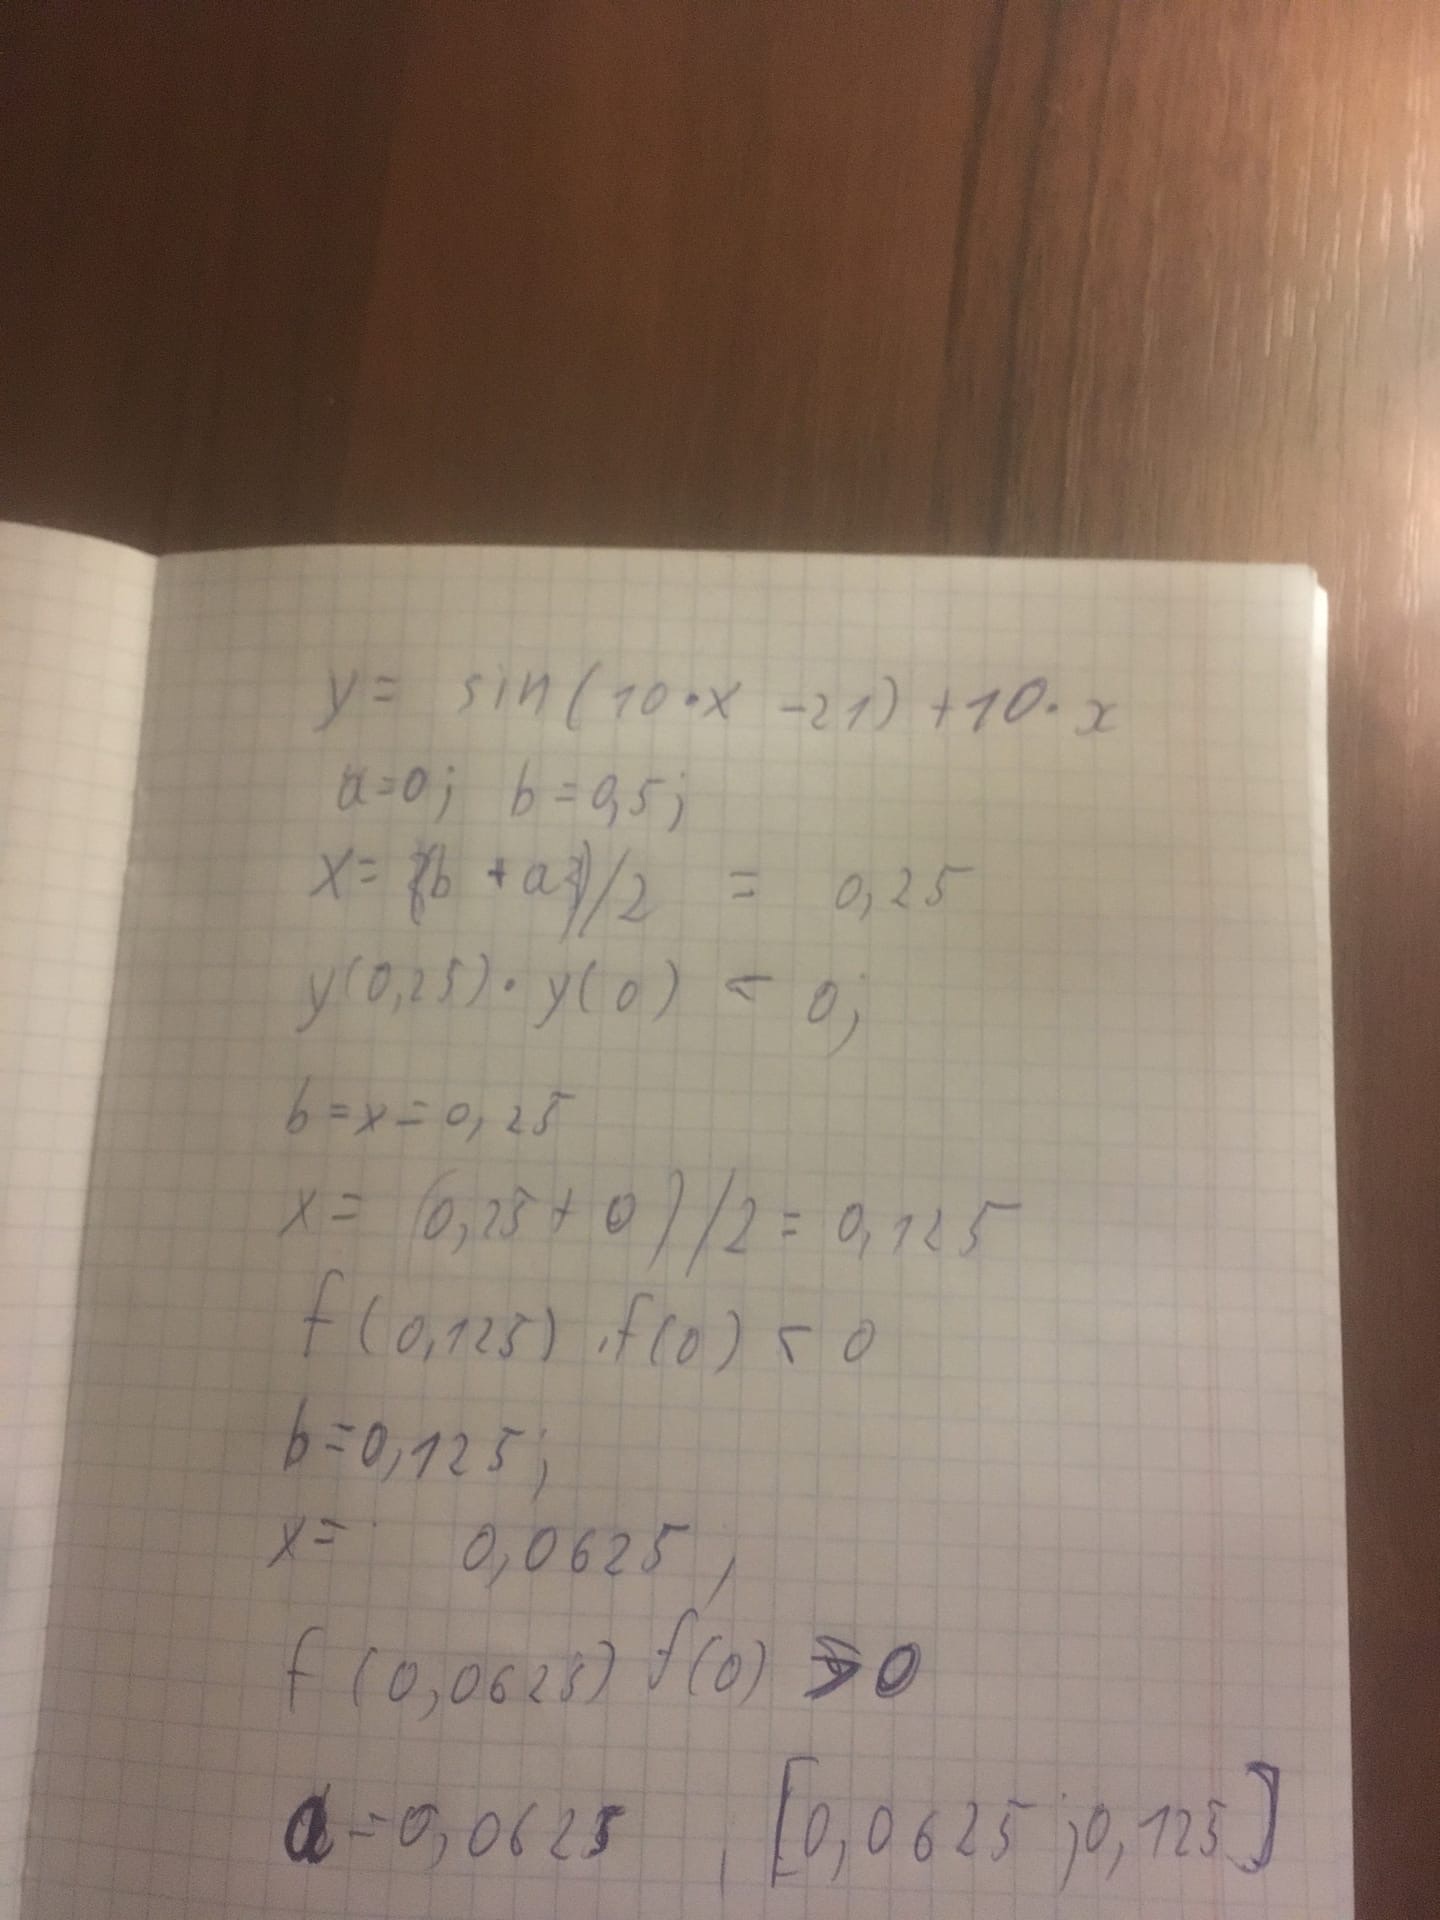 y= sin(10·x -21)+10·x
a=0; b=0,5;
x= (b + a)/2 = 0,25
y(0,25)·y(0) < 0;
b=x=0,25
x= (0,25+0)/2=0,125
f(0,125).f(0) < 0
b=0,125;
x= 0,0625,
f(0,0625) f(0) > 0
a=0,0625 , [0,0625;0,125]